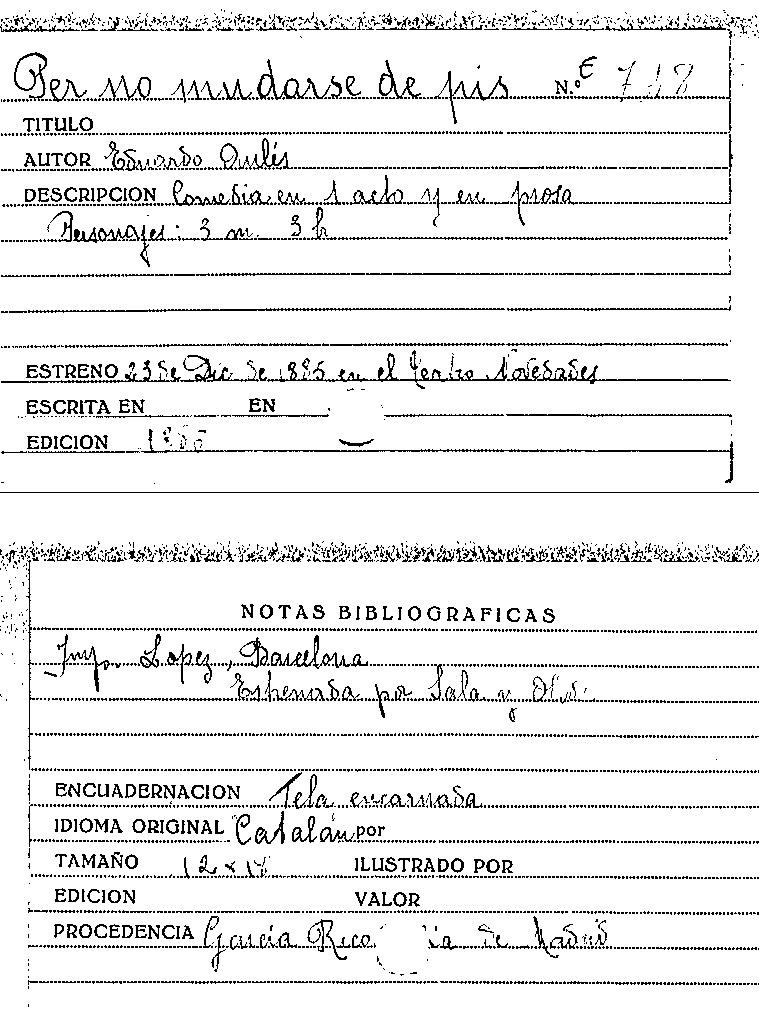 Per no mudarse de pis N.º E 712
TITULO
AUTOR Eduardo Aulés
DESCRIPCION Comedia en 1 acto y en prosa
Personajes: 3 m. 3 h
ESTRENO 23 de Dic de 1885 en el Teatro Novedades
ESCRITA EN EN
EDICION 1886
NOTAS BIBLIOGRAFICAS
Imp. Lopez, Barcelona
Estrenada por Sala y
ENCUADERNACION Tela encarnada
IDIOMA ORIGINAL Catalán por
TAMAÑO 12 x 18 ILUSTRADO POR
EDICION VALOR
PROCEDENCIA García Rico de Madrid